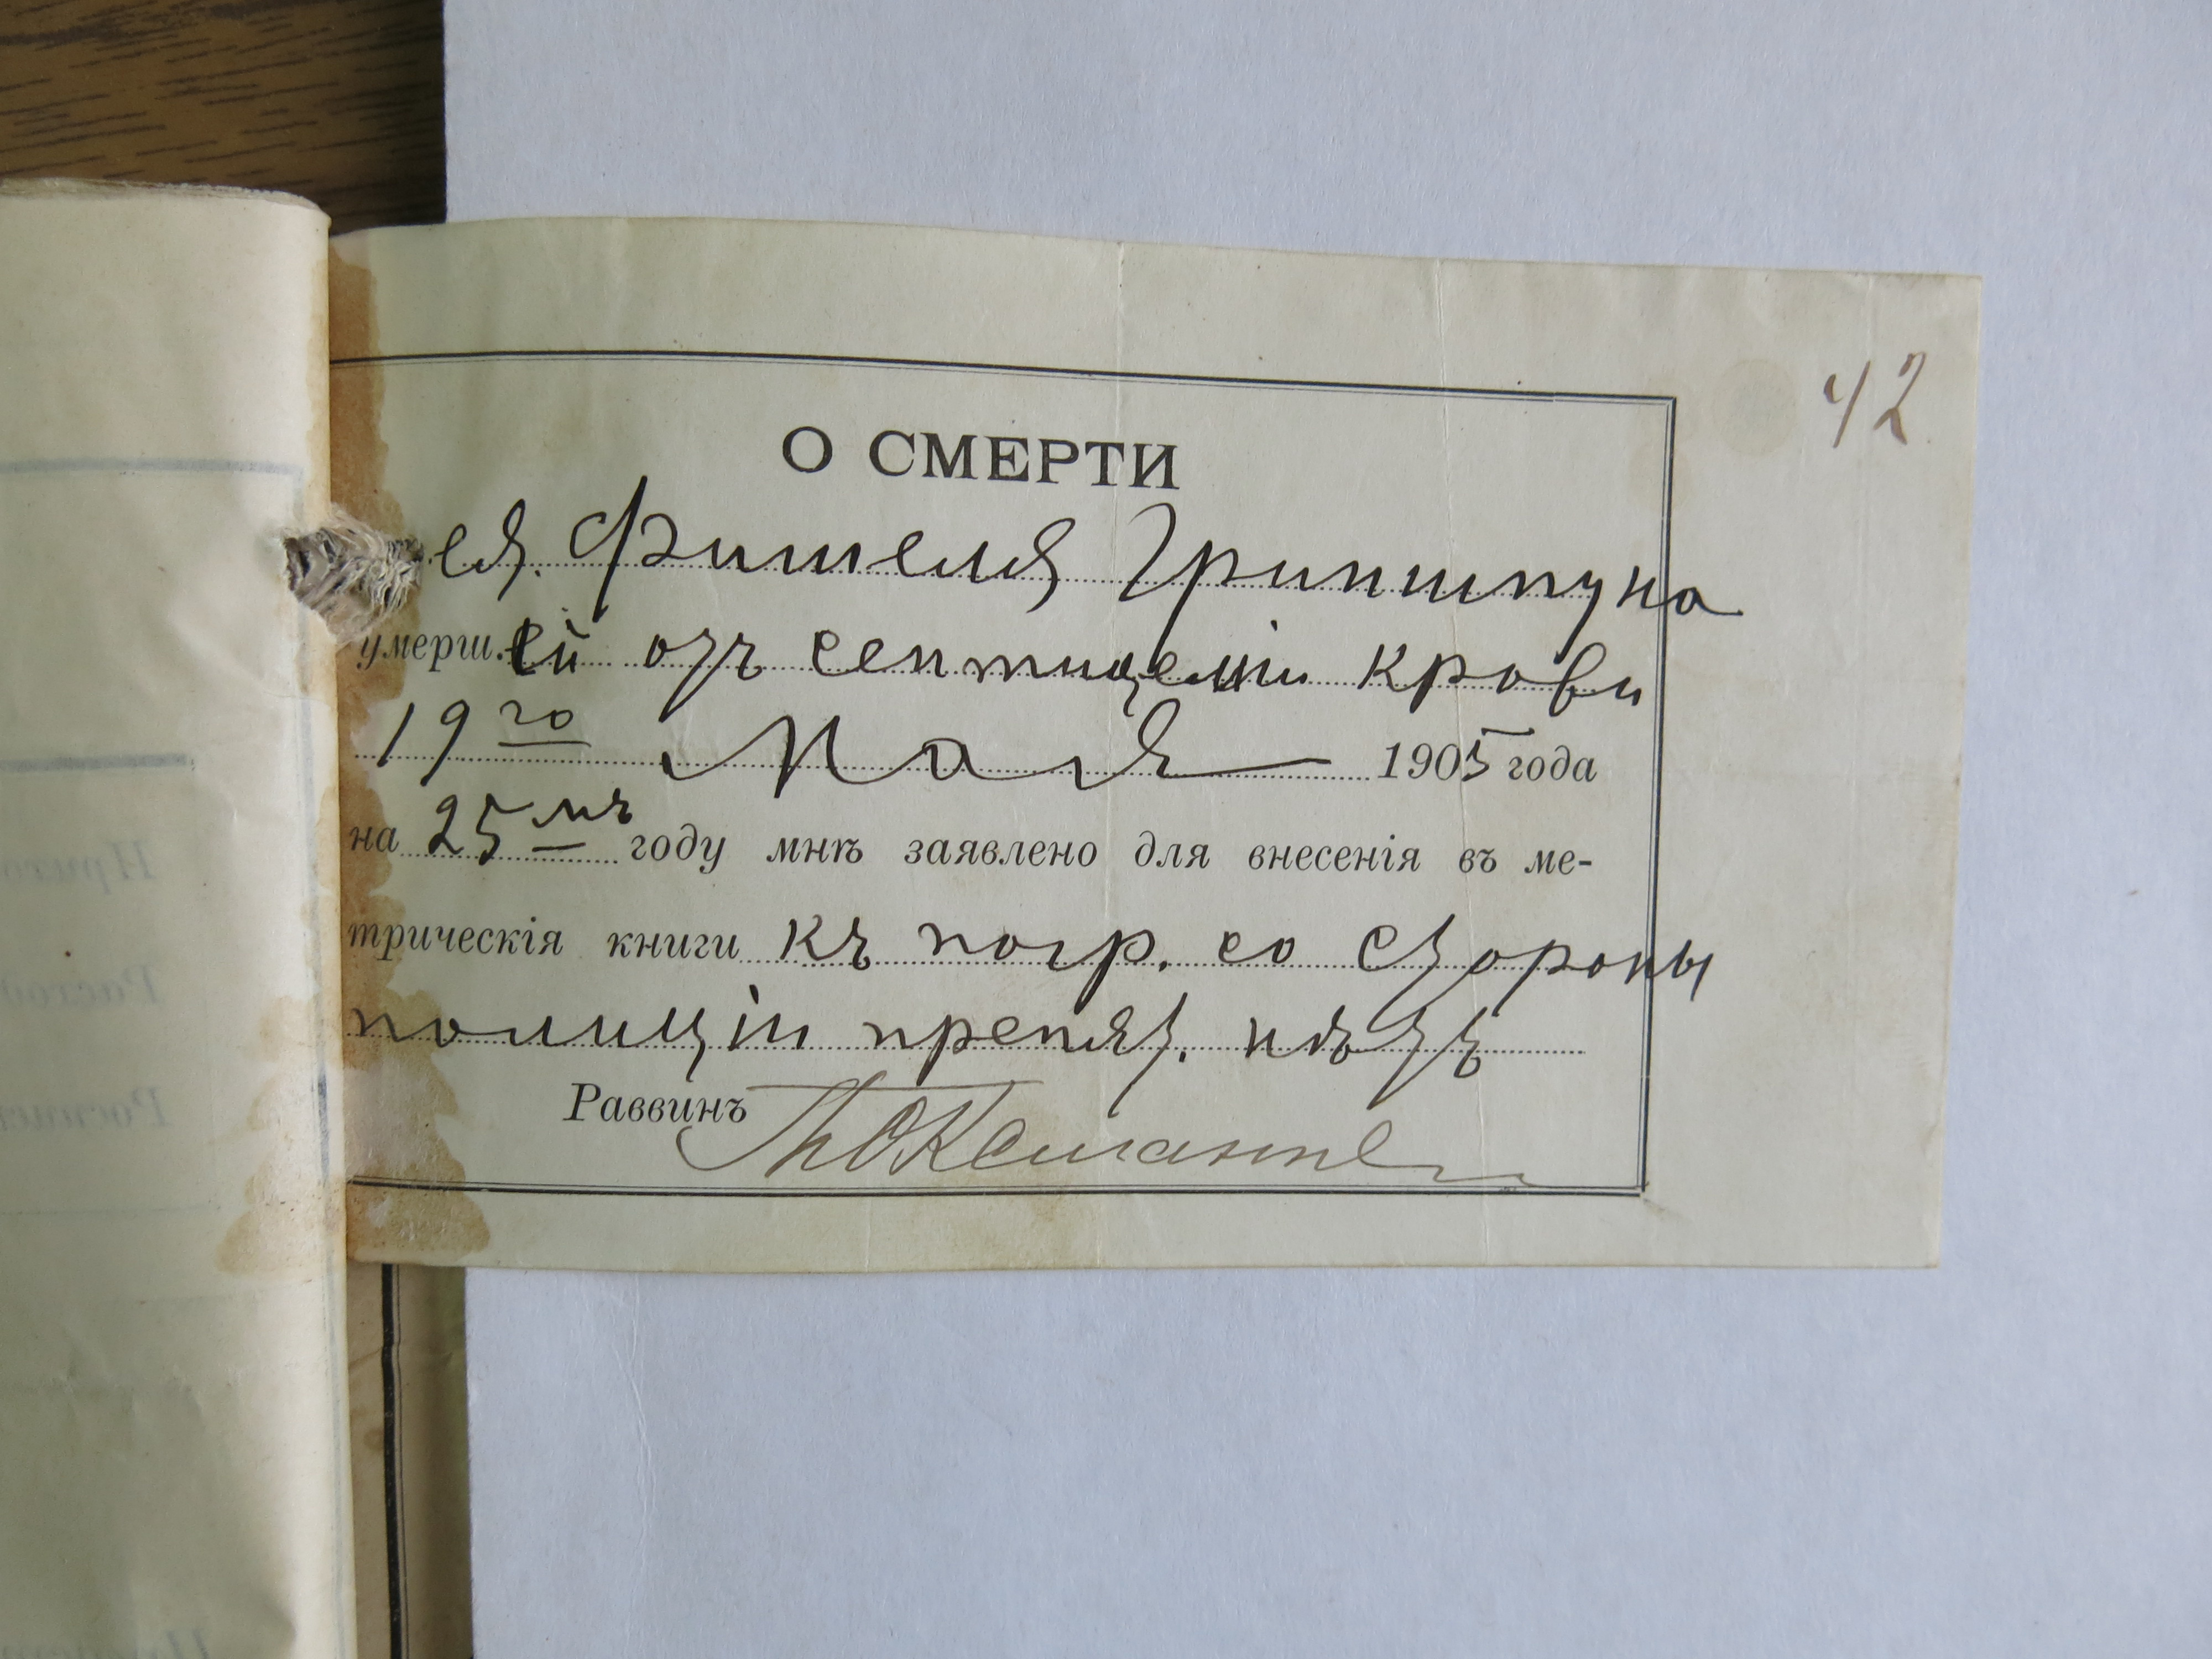 42
О СМЕРТИ
ея. Фишеля Гриншпуна
умерш.ей отъ септицеміи крови
19го Мая 1905 года
на 25мъ году мнѣ заявлено для внесенія въ ме-
трическія книги къ погр. со стороны
полиціи препят. нѣтъ
Раввинъ